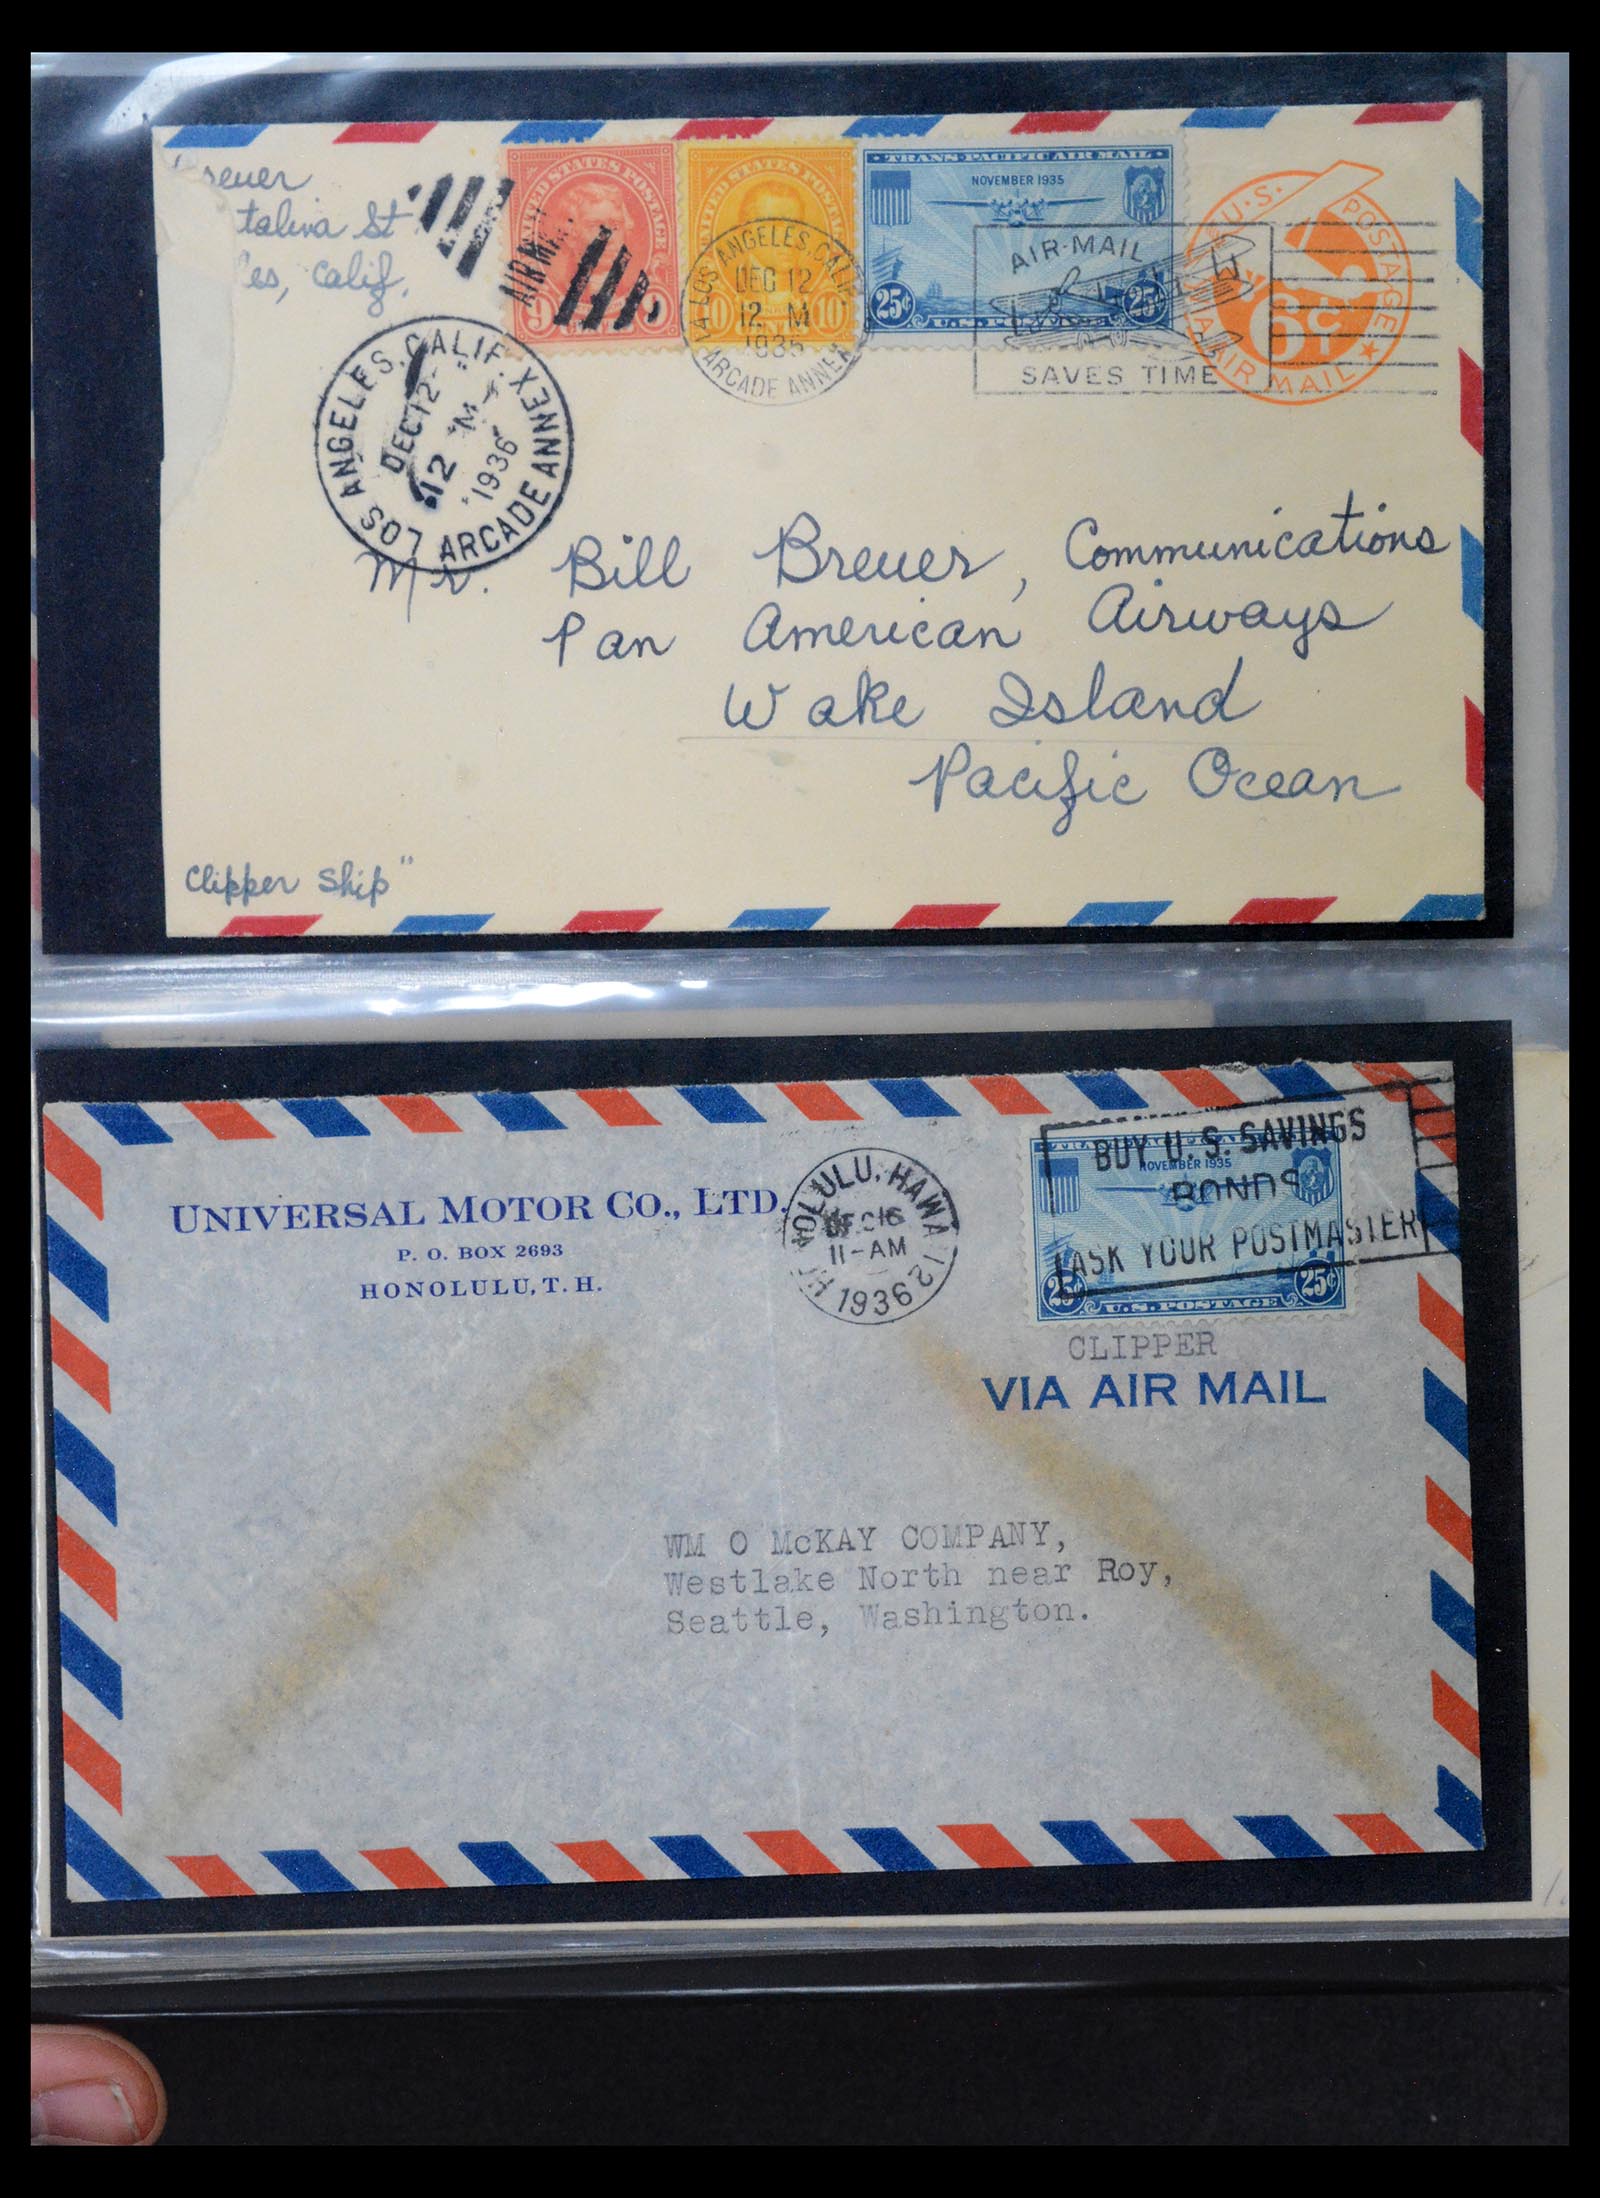 talina St
Calif.
UNITED STATES POSTAGE
9
UNITED STATES POSTAGE
10 10
CENTS
TRANS-PACIFIC AIR MAIL
NOVEMBER 1935
25¢ 25¢
U.S. POSTAGE
U.S. POSTAGE
6¢
AIR MAIL
LOS ANGELES, CALIF.
DEC 12
12 M
ARCADE ANNEX
AIR-MAIL
SAVES TIME
LOS ANGELES, CALIF.
DEC 12
12 M
1936
ARCADE ANNEX
Mr. Bill Breuer, Communications
Pan American Airways
Wake Island
Pacific Ocean
Clipper Ship"
UNIVERSAL MOTOR CO., LTD.
P. O. BOX 2693
HONOLULU, T. H.
HONOLULU, HAWAII
DEC 16
11-AM
1936
BUY U. S. SAVINGS
BONDS
ASK YOUR POSTMASTER
NOVEMBER 1935
25¢ 25¢
U.S. POSTAGE
CLIPPER
VIA AIR MAIL
WM O McKAY COMPANY,
Westlake North near Roy,
Seattle, Washington.